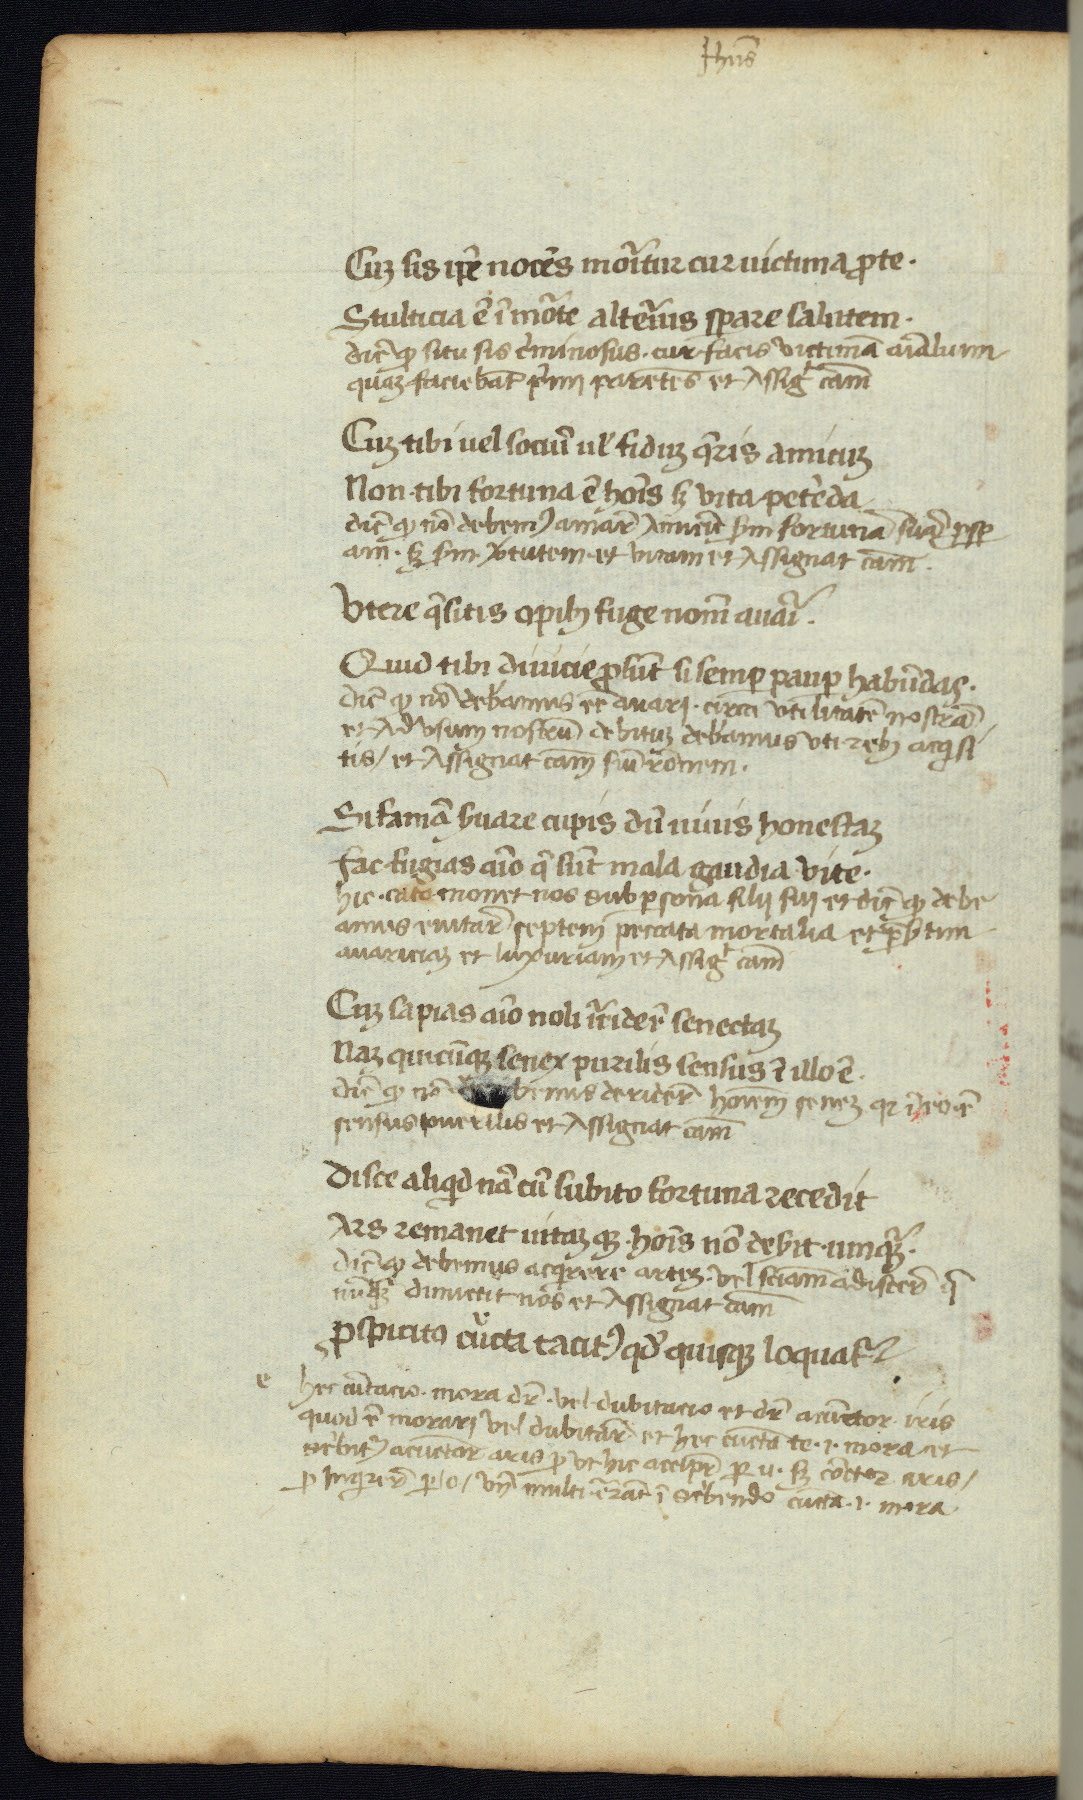 Jhus̄
Cuꝫ sis ip̄e nocēs mor̄itur cur uictima ꝓ te.
Stulticia ē ī mōte alter̄ius sperare salutem.
dic̄ ꝙ si tu sis c̄minosus. cur facis victimā aīalium
quaꝫ faciebāt p̄mi parētes et Assig͛ cam̄
Cuꝫ tibi uel sociū ul̛ fiduꝫ q̄ris amicuꝫ
Non tibi fortuna ē hoīs sꝫ vita petēda
dic̄ ꝙ nō debemꝰ amar̄ Amicū sm̄ fortunā suā ꝓsp
am. sꝫ sm̄ v̄tutem et vitam et Assignat cam̄.
Vtere q̄sitis opibꝫ fuge nom̄ auar̄i.
Quid tibi diuicie ꝓsūt si semꝑ pauꝑ habūdas.
dic̄ ꝙ nō debeamus eē auari. circa vtilitatē nostrā
et Ad vsum nostrū debituꝫ debeamus vti rebꝫ acq̄si
tis / et Assignat cam̄ siū ronem.
Si famā s̄uare cupis dū uiuis honestaꝫ
fac fugias aīo q̄ sūt mala gaudia vite.
hic cato monet nos sub ꝑsona filij sui et dic̄ ꝙ debe
amus euitar̄ septem peccata mortalia et p̄s̄tim
auariciaꝫ et luxuriam et Assig͛ cam̄
Cuꝫ sapias aīo noli irrider̄ senectaꝫ
Naꝫ quicūqꝫ senex purilis sensus ī illo ē.
dic̄ ꝙ nō debemus derider̄ hoīem seneꝫ qꝛ ī eo ē
sensus puerilis et Assignat cam̄
Disce aliquid nā cū subito fortuna recedit
Ars remanet uitaꝫqꝫ hoīs nō desit umqꝫ.
dic̄ ꝙ debemus acqrere arteꝫ vel sciam̄ adiscer̄ q̄
nūqꝫ dimictit nos et Assignat cam̄
ꝑspicito cūcta tacitꝰ qd̄ quisqꝫ loquat͛
e
hec cūctacio. mora dr̄. vel dubitacio et dr̄ a cūctor. aris
quod ē morari vel dubitar̄ et hec cuncta te. i. mora et
scribitꝰ a cūctor aris ꝓ vt hic accip̄r ꝑ u. sꝫ cōctor aris /
ꝓ Inquirer̄ ꝑ /o/ vn̄ multi errāt ī scribendo cūcta. i. mora